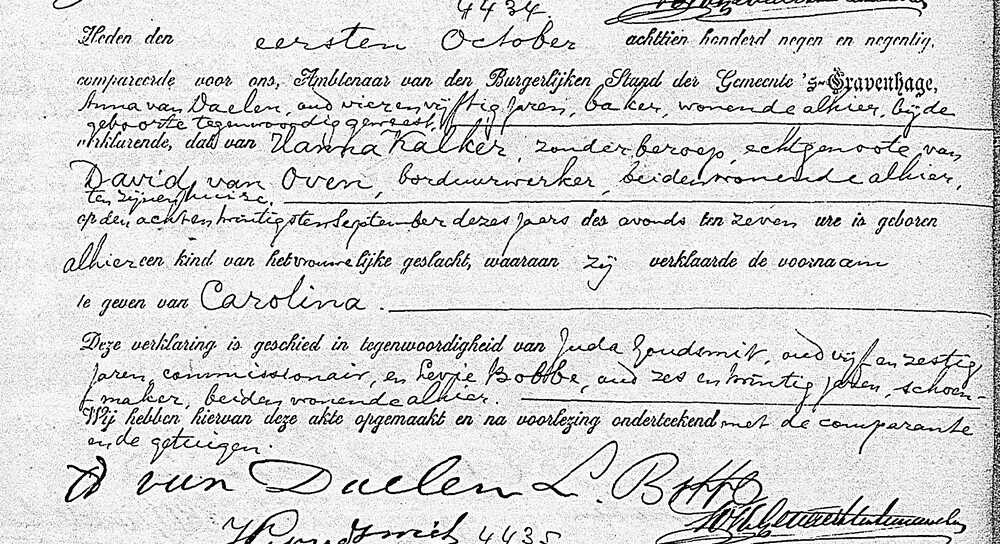 4434.
Heden den eersten October achttien honderd negen en negentig,
compareerde voor ons, Ambtenaar van den Burgerlijken Stand der Gemeente 's-Gravenhage,
Anna van Daelen, oud vier en vijftig jaren, baker, wonende alhier, bij de
geboorte tegenwoordig geweest,
verklarende, dat van Hanna Kalker, zonder beroep, echtgenoote van
David van Oven, borduurwerker, beiden wonende alhier,
ten zijnen huize,
op den achtentwintigsten September dezes jaars des avonds ten zeven ure is geboren
alhier een kind van het vrouwelijke geslacht, waaraan zij verklaarde de voornaam
te geven van Carolina.
Deze verklaring is geschied in tegenwoordigheid van Juda Goudsmit, oud vijf en zestig
jaren, commissionair, en Levie Bobbe, oud zes en twintig jaren, schoen-
maker, beiden wonende alhier.
Wij hebben hiervan deze akte opgemaakt en na voorlezing onderteekend met de comparante
en de getuigen.
A van Daelen L. Bobbe
Goudsmit 4435.